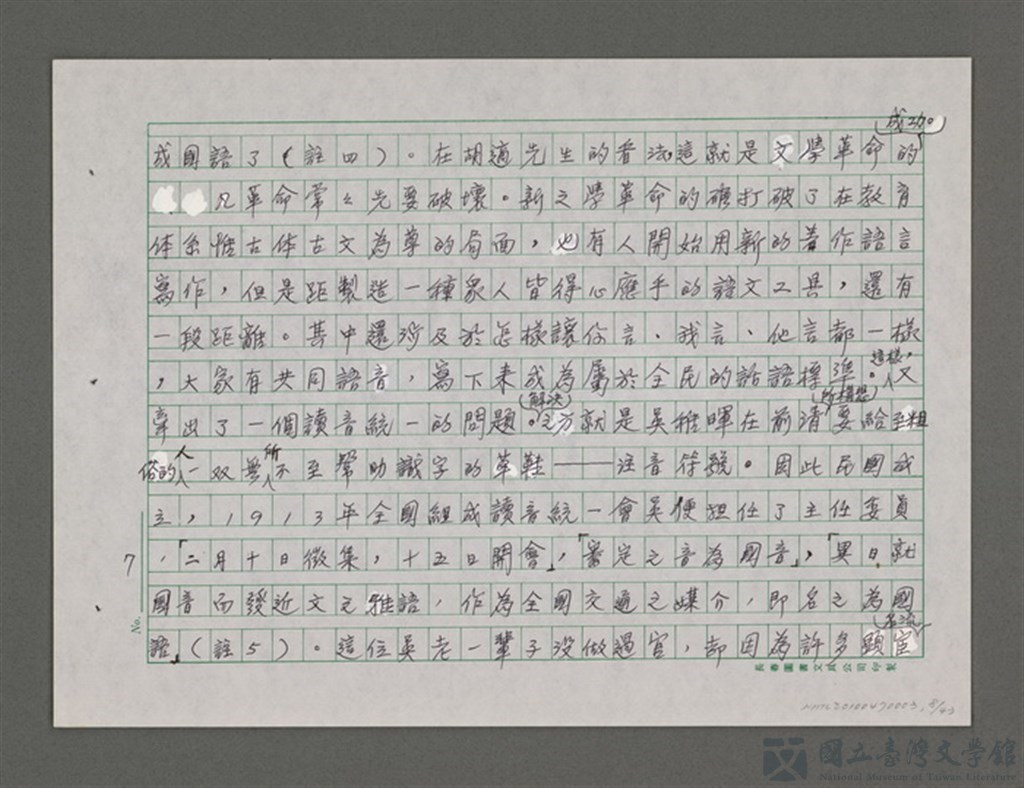 成功。
成國語了(註四)。在胡適先生的看法這就是文學革命的
凡革命常々先要破壞。新文學革命的確打破了在教育
体系惟古体古文為尊的局面,也有人開始用新的著作語言
寫作,但是距製造一種衆人皆得心應手的語文工具,還有
一段距離。其中還涉及於怎樣讓你言、我言、他言都一樣
這樣,
,大家有共同語音,寫下来成為屬於全民的話語標準。又
(解決) (所構想)
牽出了一個讀音統一的問題。之方就是吳稚暉在前清要給至粗
人 所
俗的一双無不至幫助識字的革鞋——注音符號。因此民國成
立,1913年全國組成讀音統一會吳便担任了主任委員
7 ,「二月十日徵集,十五日開會」,「審定之音為國音」,「異日就
國音而發近文之雅語,作為全國交通之媒介,即名之為國
名流
語」(註5)。這位吳老一輩子没做過官,却因為許多顯宦
No.
長春圖書文具公司印製
NMTL20100470003, 8/43
國立臺灣文學館
National Museum of Taiwan Literature